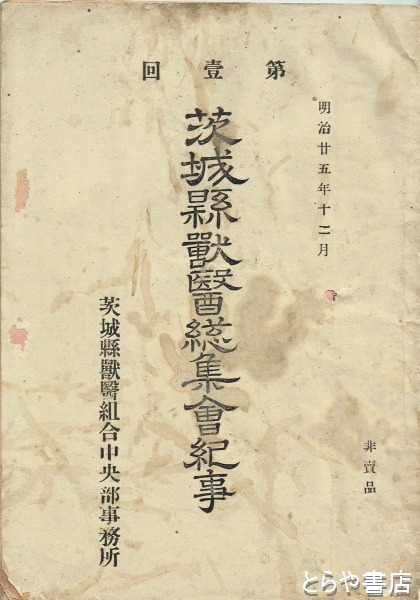 明治廿五年十二月
非賣品
第壹回
茨城縣獸醫総集會紀事
茨城縣獸醫組合中央部事務所
とらや書店